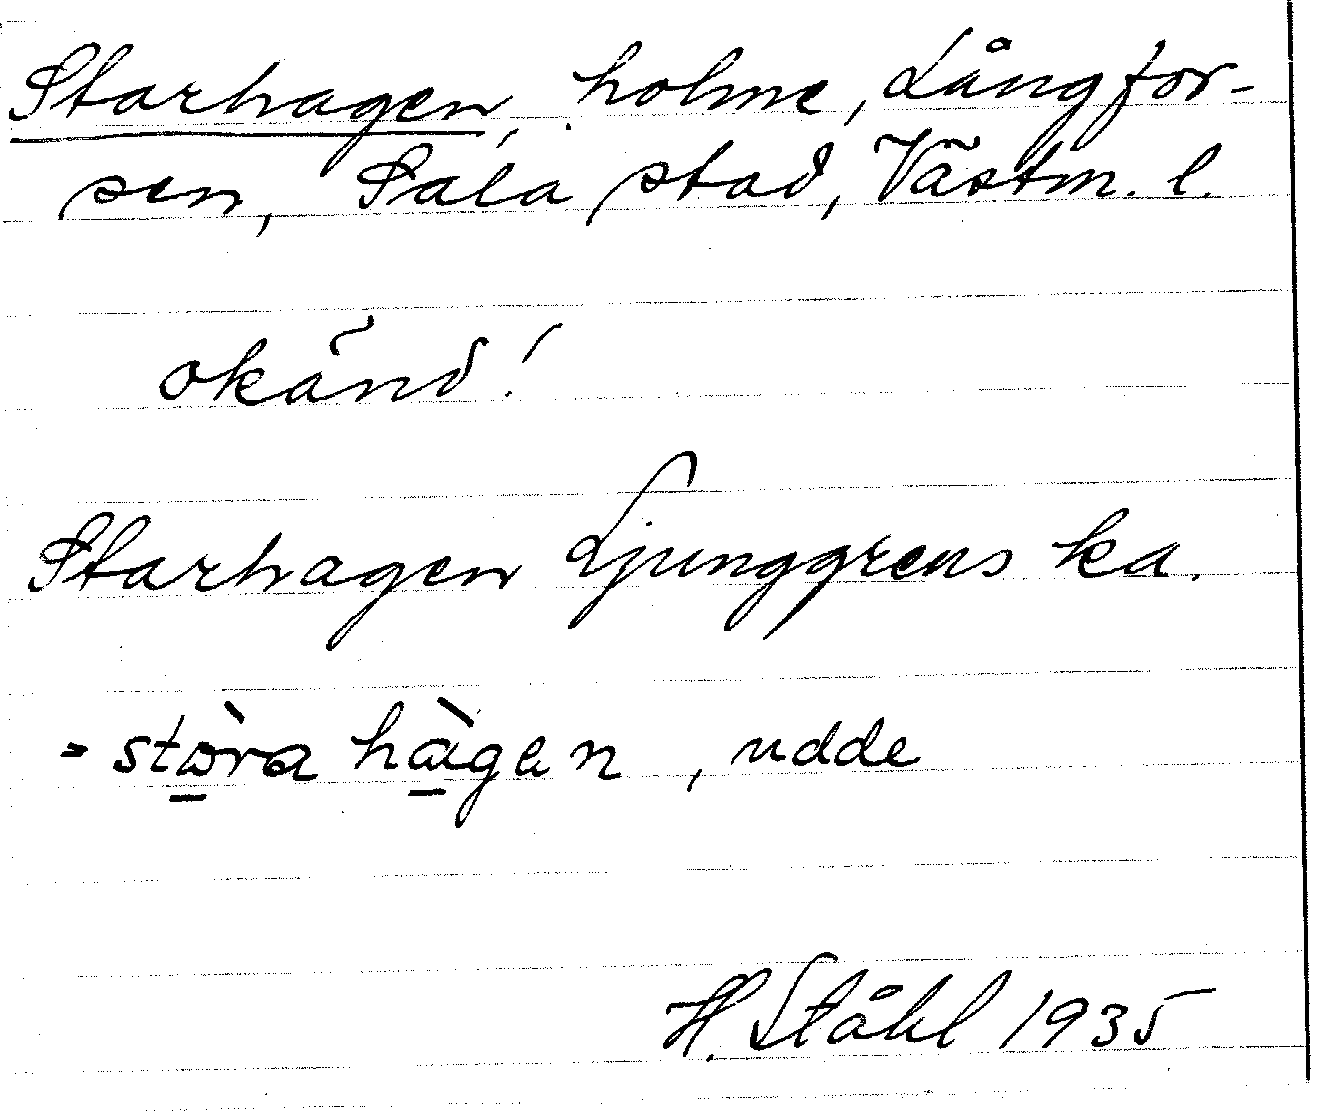 Starhagen, holme, Långfor-
sen, Sala stad, Västm. l.
okänd!
Starhagen Ljunggrens ka.
= stòra hàgen, udde
H. Ståhl 1935